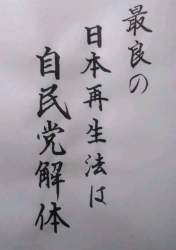 最良の
日本再生法は
自民党解体